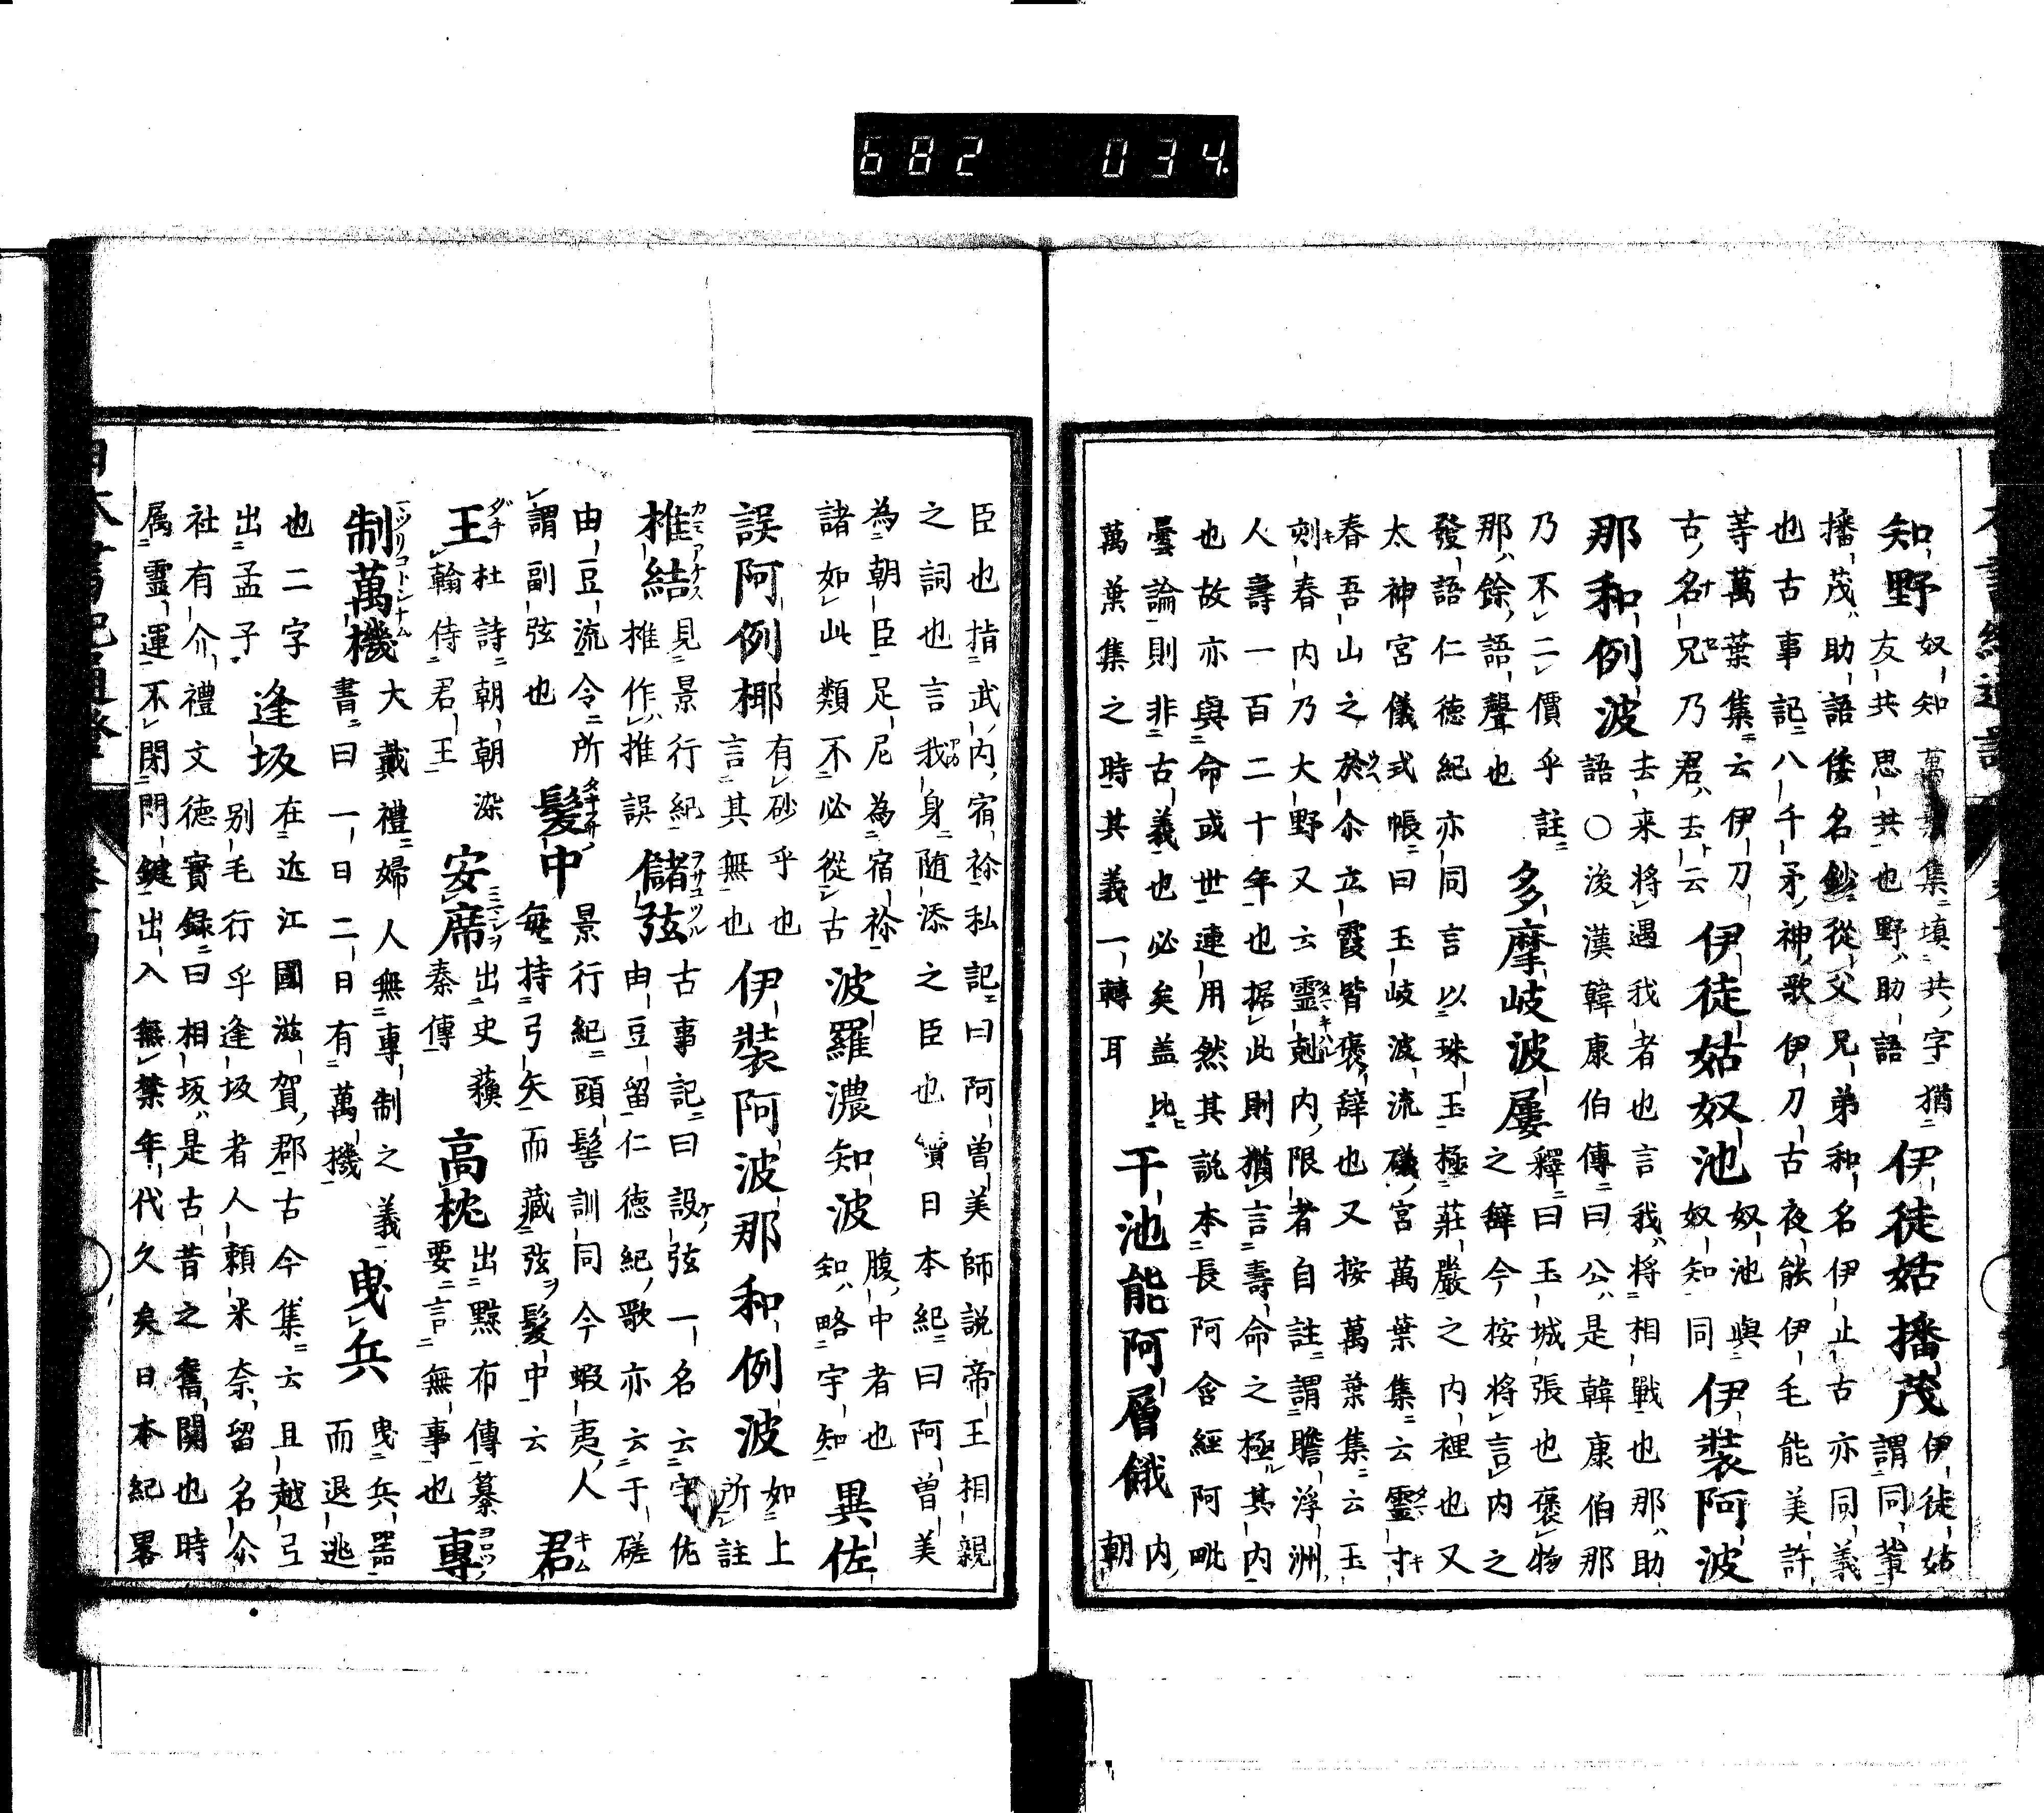 知野奴知萬葉集填共字猶
友共思共也野助語
伊徒姑播茂伊徒姑
謂同輩
播茂助語倭名鈔從父兄弟和名伊止古亦同義
也古事記八千矛神歌伊刀古夜能伊毛能美許
等萬葉集云伊刀
古名兄乃君去云
伊徒姑奴池奴池與
奴知同
伊裝阿波
那和例波去来將遇我者也言我將相戰也那助
語○後漢韓康伯傳曰公是韓康伯那
乃不二價乎註
那餘語聲也
多摩岐波屢釋曰玉城張也褒物
之辭今按將言内之
發語仁徳紀亦同言以珠玉極莊嚴之内裡也又
太神宮儀式帳曰玉岐波流礒宮萬葉集云霊寸
春吾山之於尒立霞皆褒辭也又按萬葉集云玉
刻春内乃大野又云霊剋内限者自註謂瞻浮洲
人壽一百二十年也据此則猶言壽命之極其内
也故亦與命或世連用然其説本長阿含經阿毗
曇論則非古義也必矣盖比
萬葉集之時其義一轉耳
干池能阿層餓内
朝
臣也指武内宿祢私記曰阿曽美師説帝王相親
之詞也言我身随添之臣也讀日本紀曰阿曽美
為朝臣足尼為宿祢
諸如此類不必從古
波羅濃知波腹中者也
知略宇知
異佐
誤阿例椰有砂乎也
言其無也
伊裝阿波那和例波如上
所註
推結見景行紀
推作推誤
儲弦古事記曰設弦一名云宇佐
由豆留仁徳紀歌亦云于磋
由豆流令所
謂副弦也
髮中景行紀頭髻訓同今蝦夷人
毎持弓矢而藏弦髮中云
君
王杜詩朝朝染
翰侍君王
安席出史蘓
秦傳
高枕出黥布傳纂
要言無事也
專
制萬機大戴禮婦人無專制之義
書曰一日二日有萬機
曳兵曳兵器
而退逃
也二字
出孟子
逢坂在近江國滋賀郡古今集云且越弓
别毛行乎逢坂者人頼米奈留名尒
社有介禮文德實録曰相坂是古昔之舊関也時
属霊運不閉門鍵出入無禁年代久矣日本紀畧
682 034